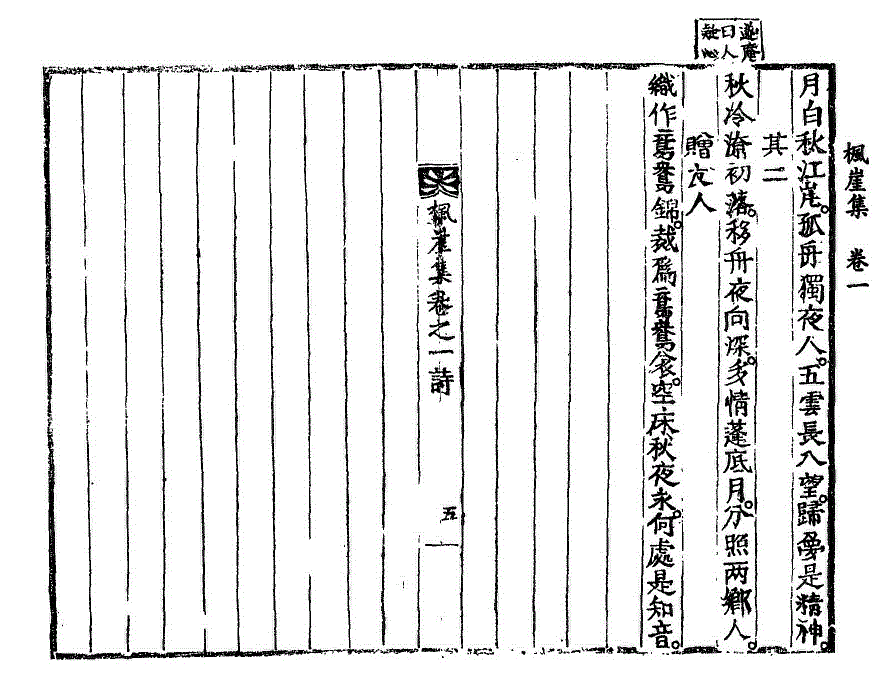 楓崖集　卷一
月白秋江岸。孤舟獨夜人。五雲長入望。歸夢是精神。
其二
秋冷潦初落。移舟夜向深。多情蓬底月。分照两鄉人。
贈友人
織作鴛鴦錦。裁爲鴛鴦衾。空床秋夜永。何處是知音。
楓崖集卷之一　詩
五
曰人